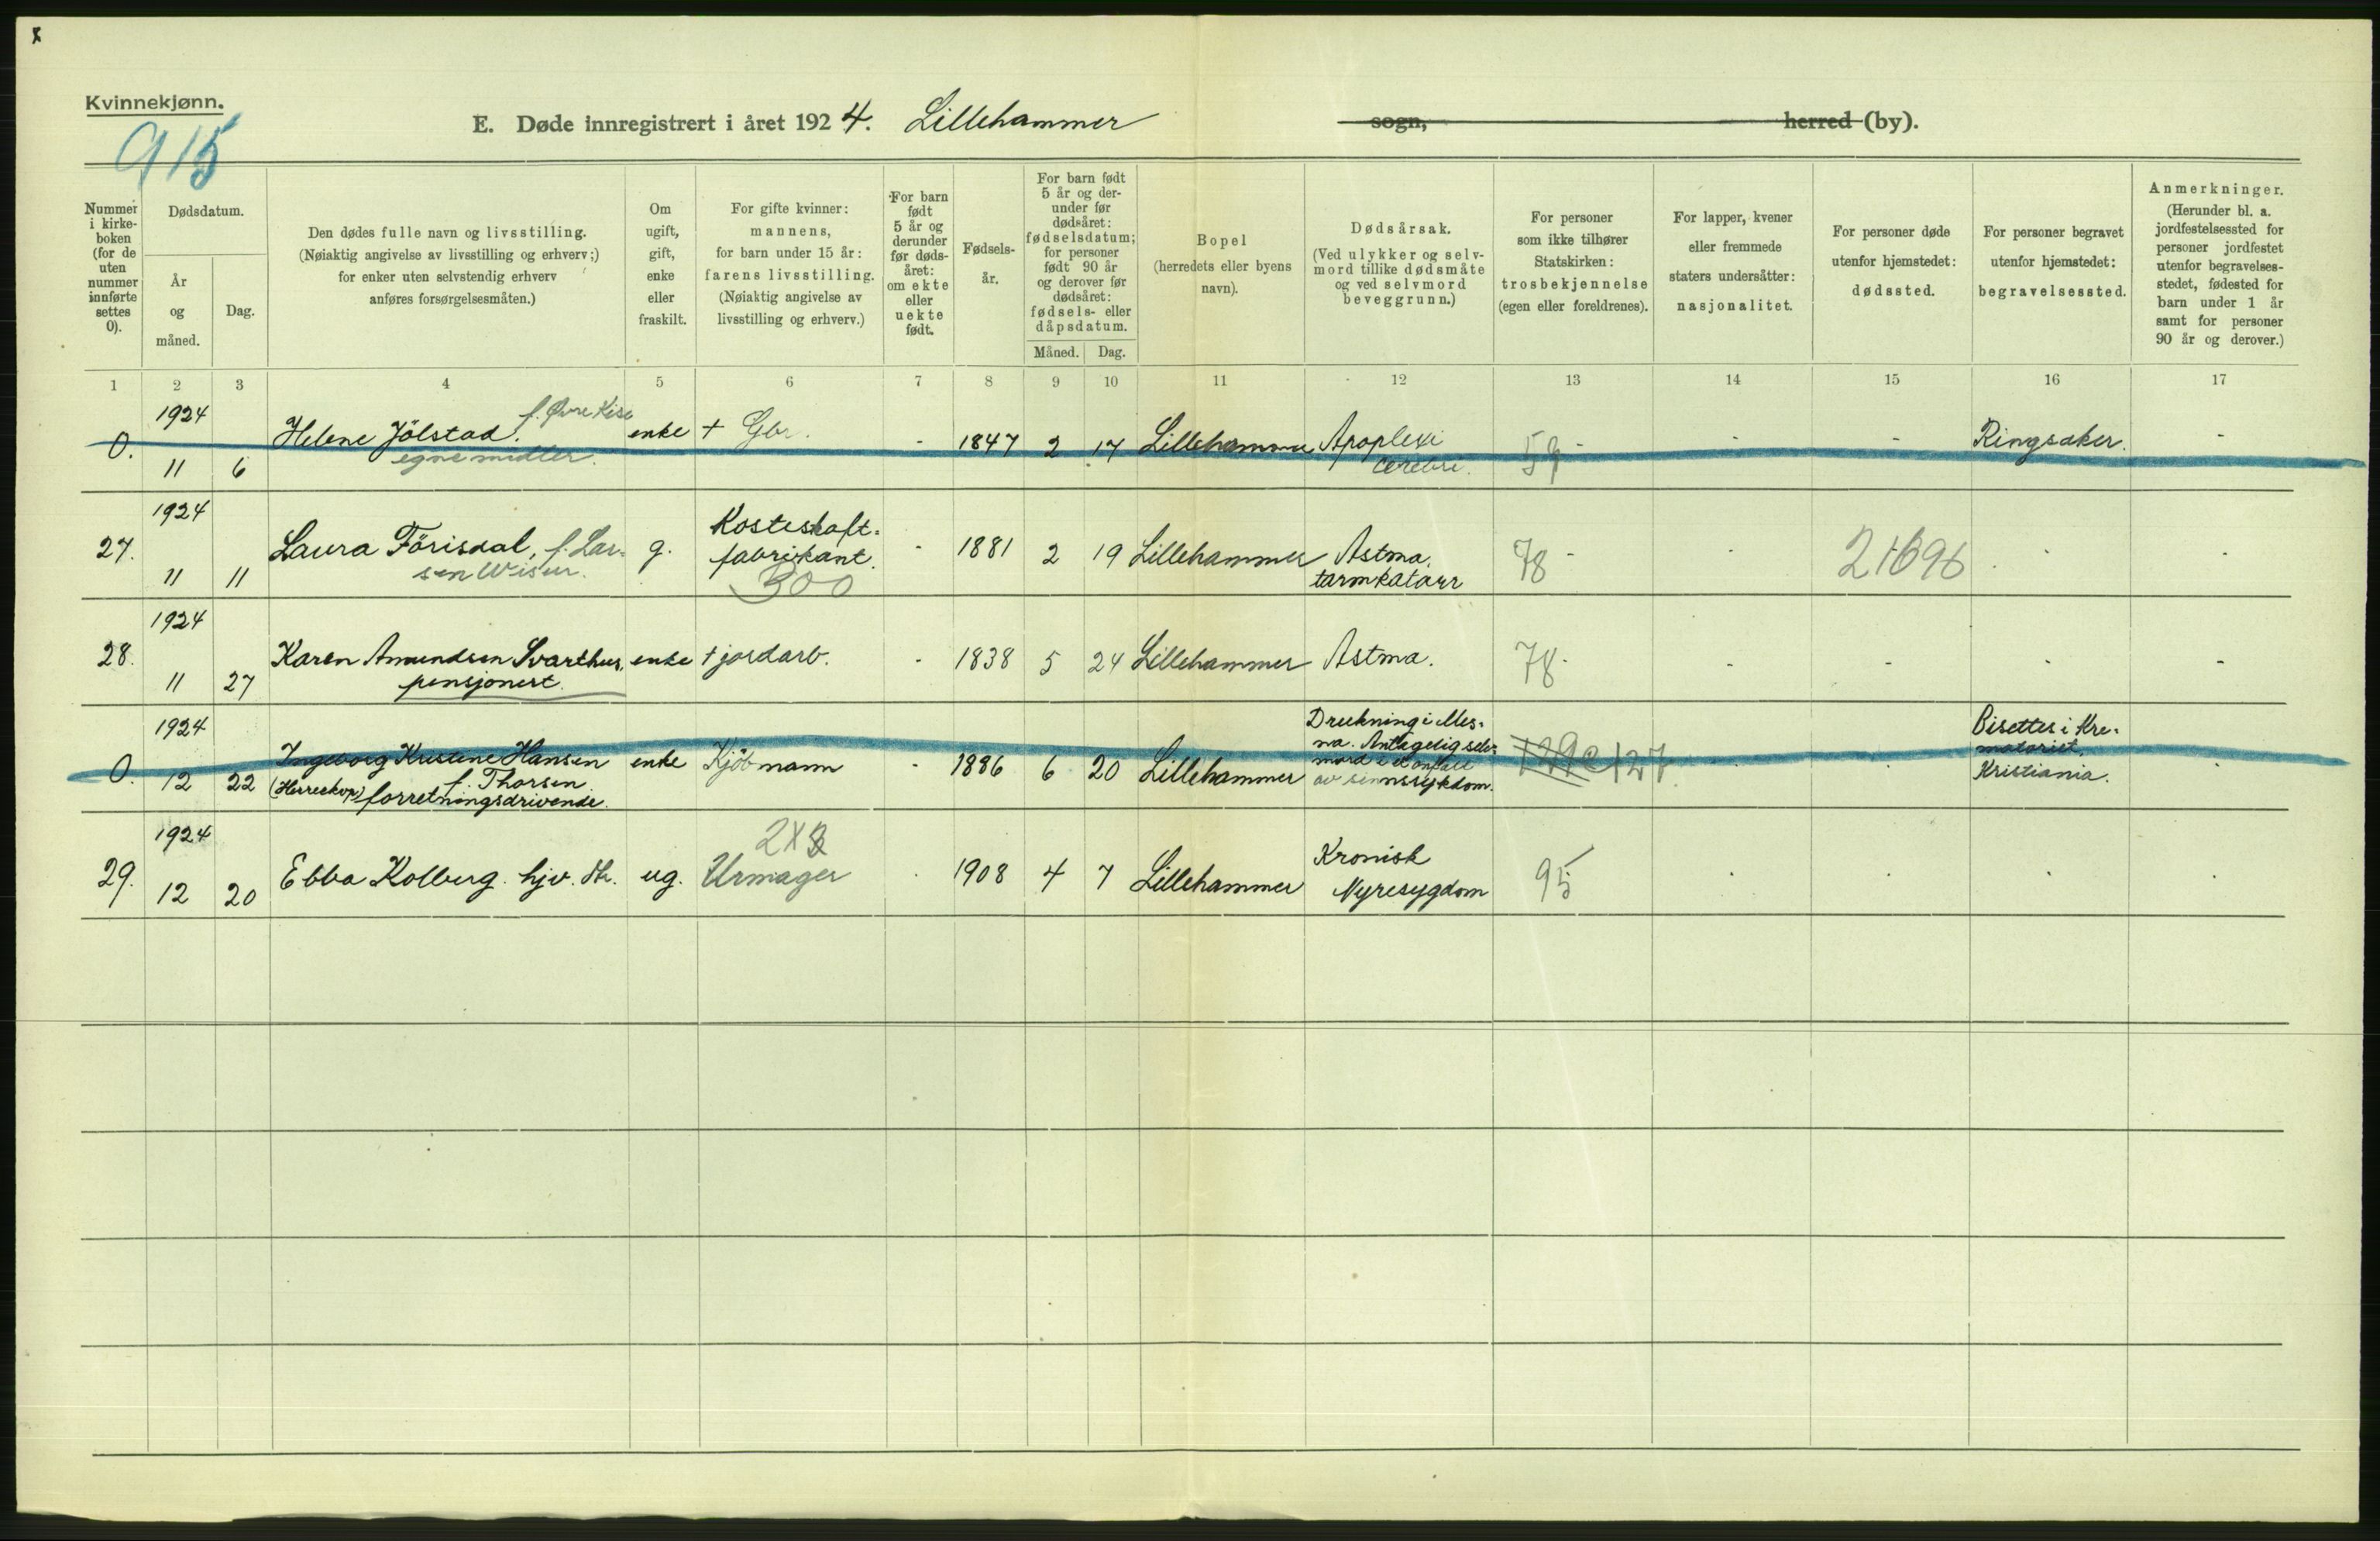 Kvinnekjønn.
915
E. Døde innregistrert i året 1924. Lillehammer sogn, herred (by).
Nummer i kirke-boken (for de uten nummer innførte settes 0).
Dødsdatum.
År og måned.
Dag.
Den dødes fulle navn og livsstilling.
(Nøiaktig angivelse av livsstilling og erhverv;)
for enker uten selvstendig erhverv
anføres forsørgelsesmåten.)
Om
ugift,
gift,
enke
eller
fraskilt.
For gifte kvinner:
mannens,
for barn under 15 år:
farens livsstilling.
(Nøiaktig angivelse av
livsstilling og erhverv.)
For barn
født
5 år og
derunder
før døds-
året:
om ekte
eller
uekte
født.
Fødsels-
år.
For barn født
5 år og der-
under før
dødsåret:
fødselsdatum;
for personer
født 90 år
og derover før
dødsåret:
fødsels- eller
dåpsdatum.
Måned. Dag.
Bopel
(herredets eller byens
navn).
Dødsårsak.
(Ved ulykker og selv-
mord tillike dødsmåte
og ved selvmord
beveggrunn.)
For personer
som ikke tilhører
Statskirken:
trosbekjennelse
(egen eller foreldrenes).
For lapper, kvener
eller fremmede
staters undersåtter:
nasjonalitet.
For personer døde
utenfor hjemstedet:
dødssted.
For personer begravet
utenfor hjemstedet:
begravelsessted.
Anmerkninger.
(Herunder bl. a.
jordfestelsessted for
personer jordfestet
utenfor begravelses-
stedet, fødested for
barn under 1 år
samt for personer
90 år og derover.)
1 2 3 4 5 6 7 8 9 10 11 12 13 14 15 16 17
1924 f. Øvre Kise
0. Helene Jölstad. enke + Gbr. - 1847 2 17 Lillehammer Apoplexi 59 - - - Ringsaker. -
11 6 egne midler. cerebri.
1924 Kosteskaft-
27. Laura Förisdal, f. Lar- g. fabrikant. - 1881 2 19 Lillehammer Astma. 78 - - 21696 - -
11 11 300 tarmkatarr
1924
28. Karen Amundsen Svarthus, enke + jordarb. - 1838 5 24 Lillehammer Astma. 78 - - - - -
11 27 pensjonert.
1924 Drukning i Mes-
na. Antagelig selv-
mord i et anfall
av sinnssykdom.
0. Ingeborg Kristine Hansen enke Kjöbmann - 1886 6 20 Lillehammer 129c 127
12 22 f. Thorsen
forretningsdrivende.
Bisettes i Kre-
matoriet,
Kristiania.
1924 2X3
29. Ebba Kolberg. hjv. dtr. ug. Urmager 1908 4 7 Lillehammer Kronisk
12 20 Nyresygdom 95